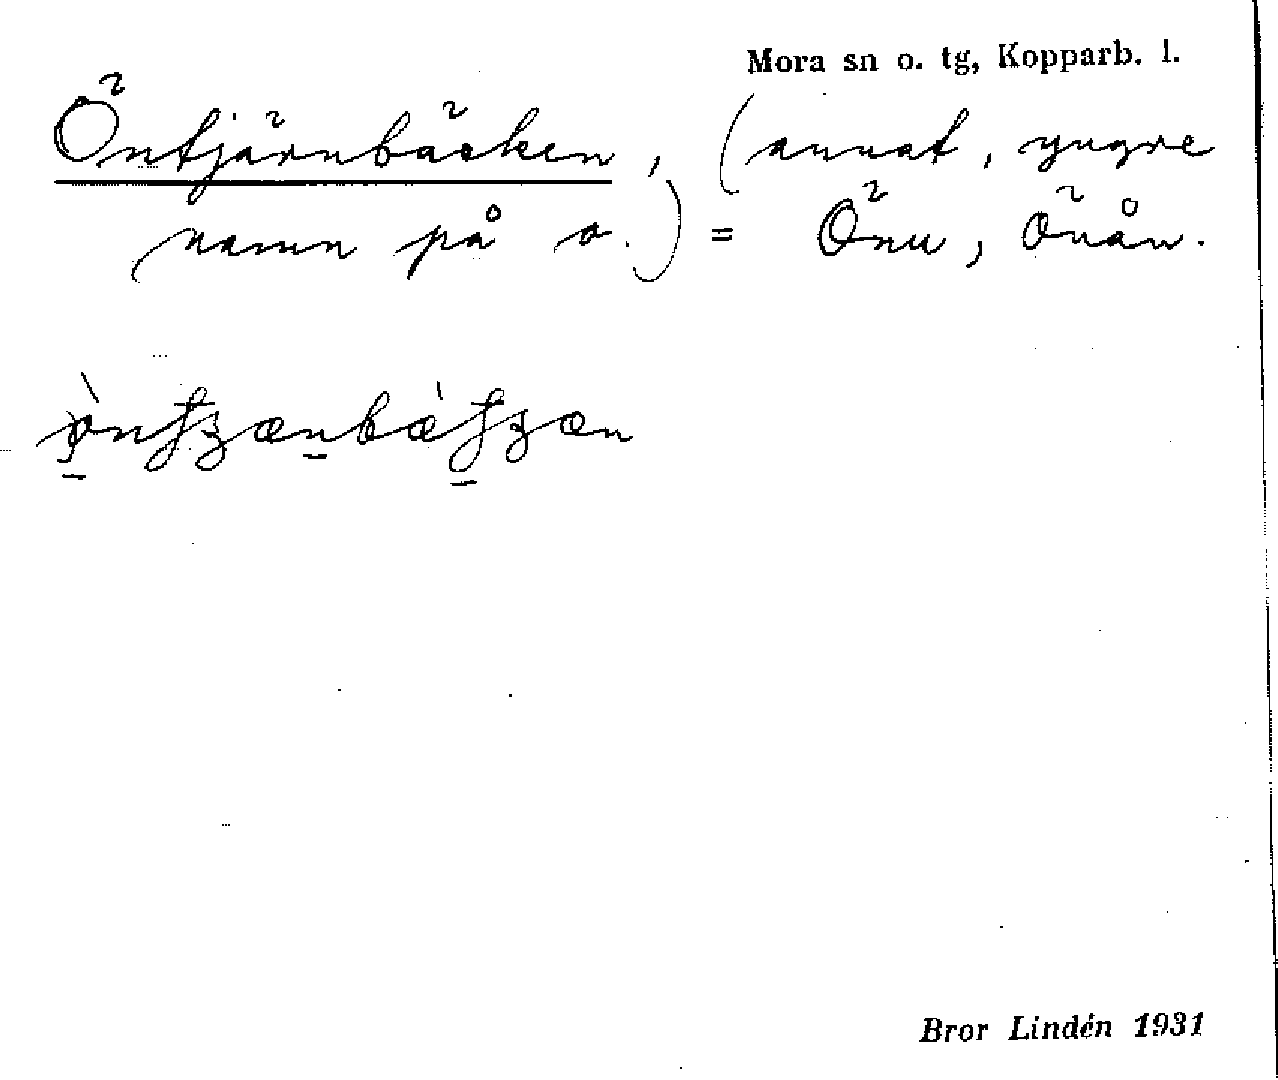 Mora sn o. tg, Kopparb. l.
Öntjärnbäcken, (annat, yngre
namn på o.) = Önu, Önån.
Bror Lindén 1931